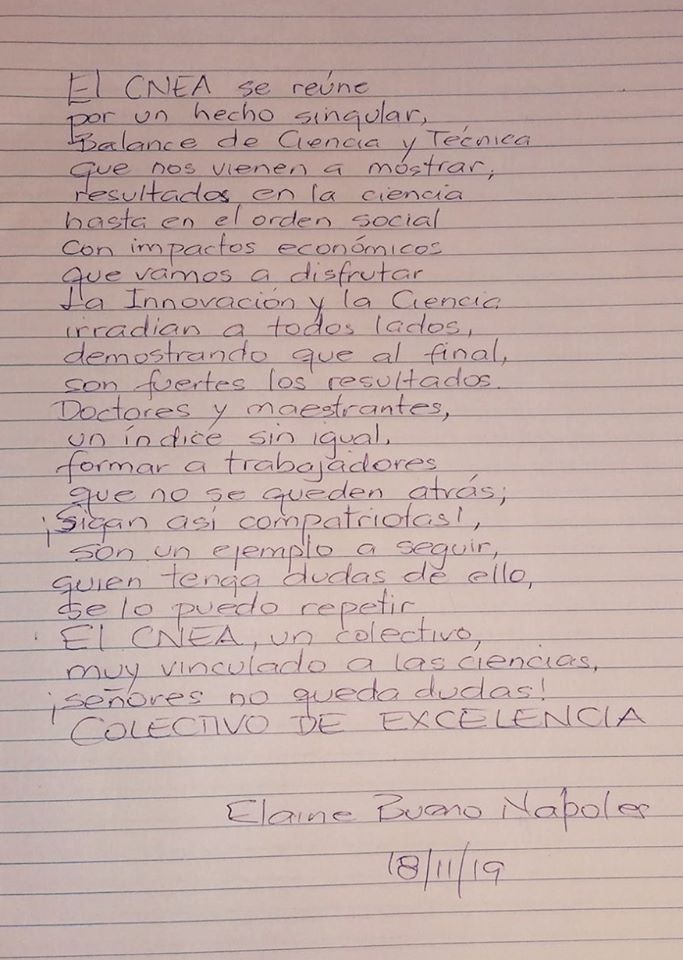 El CNEA se reúne
por un hecho singular,
Balance de Ciencia y Técnica
que nos vienen a móstrar,
resultados en la ciencia
hasta en el orden social
con impactos económicos
que vamos a disfrutar
La Innovación y la Ciencia
irradian a todos lados,
demostrando que al final,
son fuertes los resultados.
Doctores y maestrantes,
un índice sin igual,
formar a trabajadores
que no se queden atrás;
¡Sigan así compatriotas!,
son un ejemplo a seguir,
quien tenga dudas de ello,
se lo puedo repetir
El CNEA, un colectivo,
muy vinculado a las ciencias,
¡señores no queda dudas!
COLECTIVO DE EXCELENCIA
Elaine Bueno Napoles
18/11/19